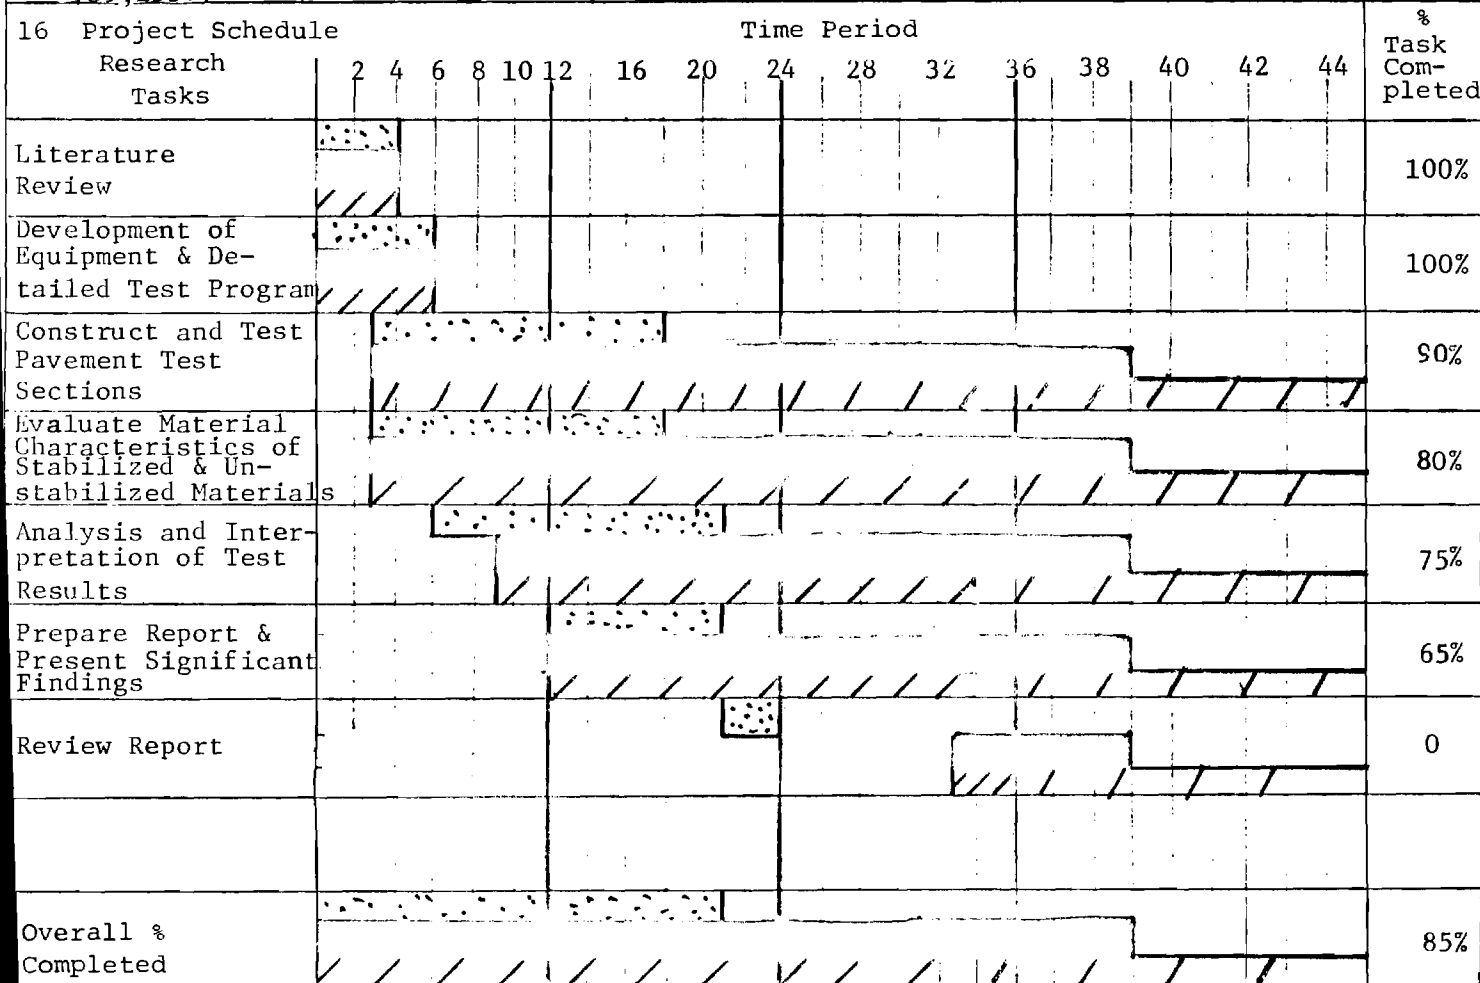 16 Project Schedule
Research
Tasks
Time Period
2 4 6 8 10 12 16 20 24 28 32 36 38 40 42 44
%
Task
Com-
pleted
Literature
Review
100%
Development of
Equipment & De-
tailed Test Program
100%
Construct and Test
Pavement Test
Sections
90%
Evaluate Material
Characteristics of
Stabilized & Un-
stabilized Materials
80%
Analysis and Inter-
pretation of Test
Results
75%
Prepare Report &
Present Significant
Findings
65%
Review Report
0
Overall %
Completed
85%